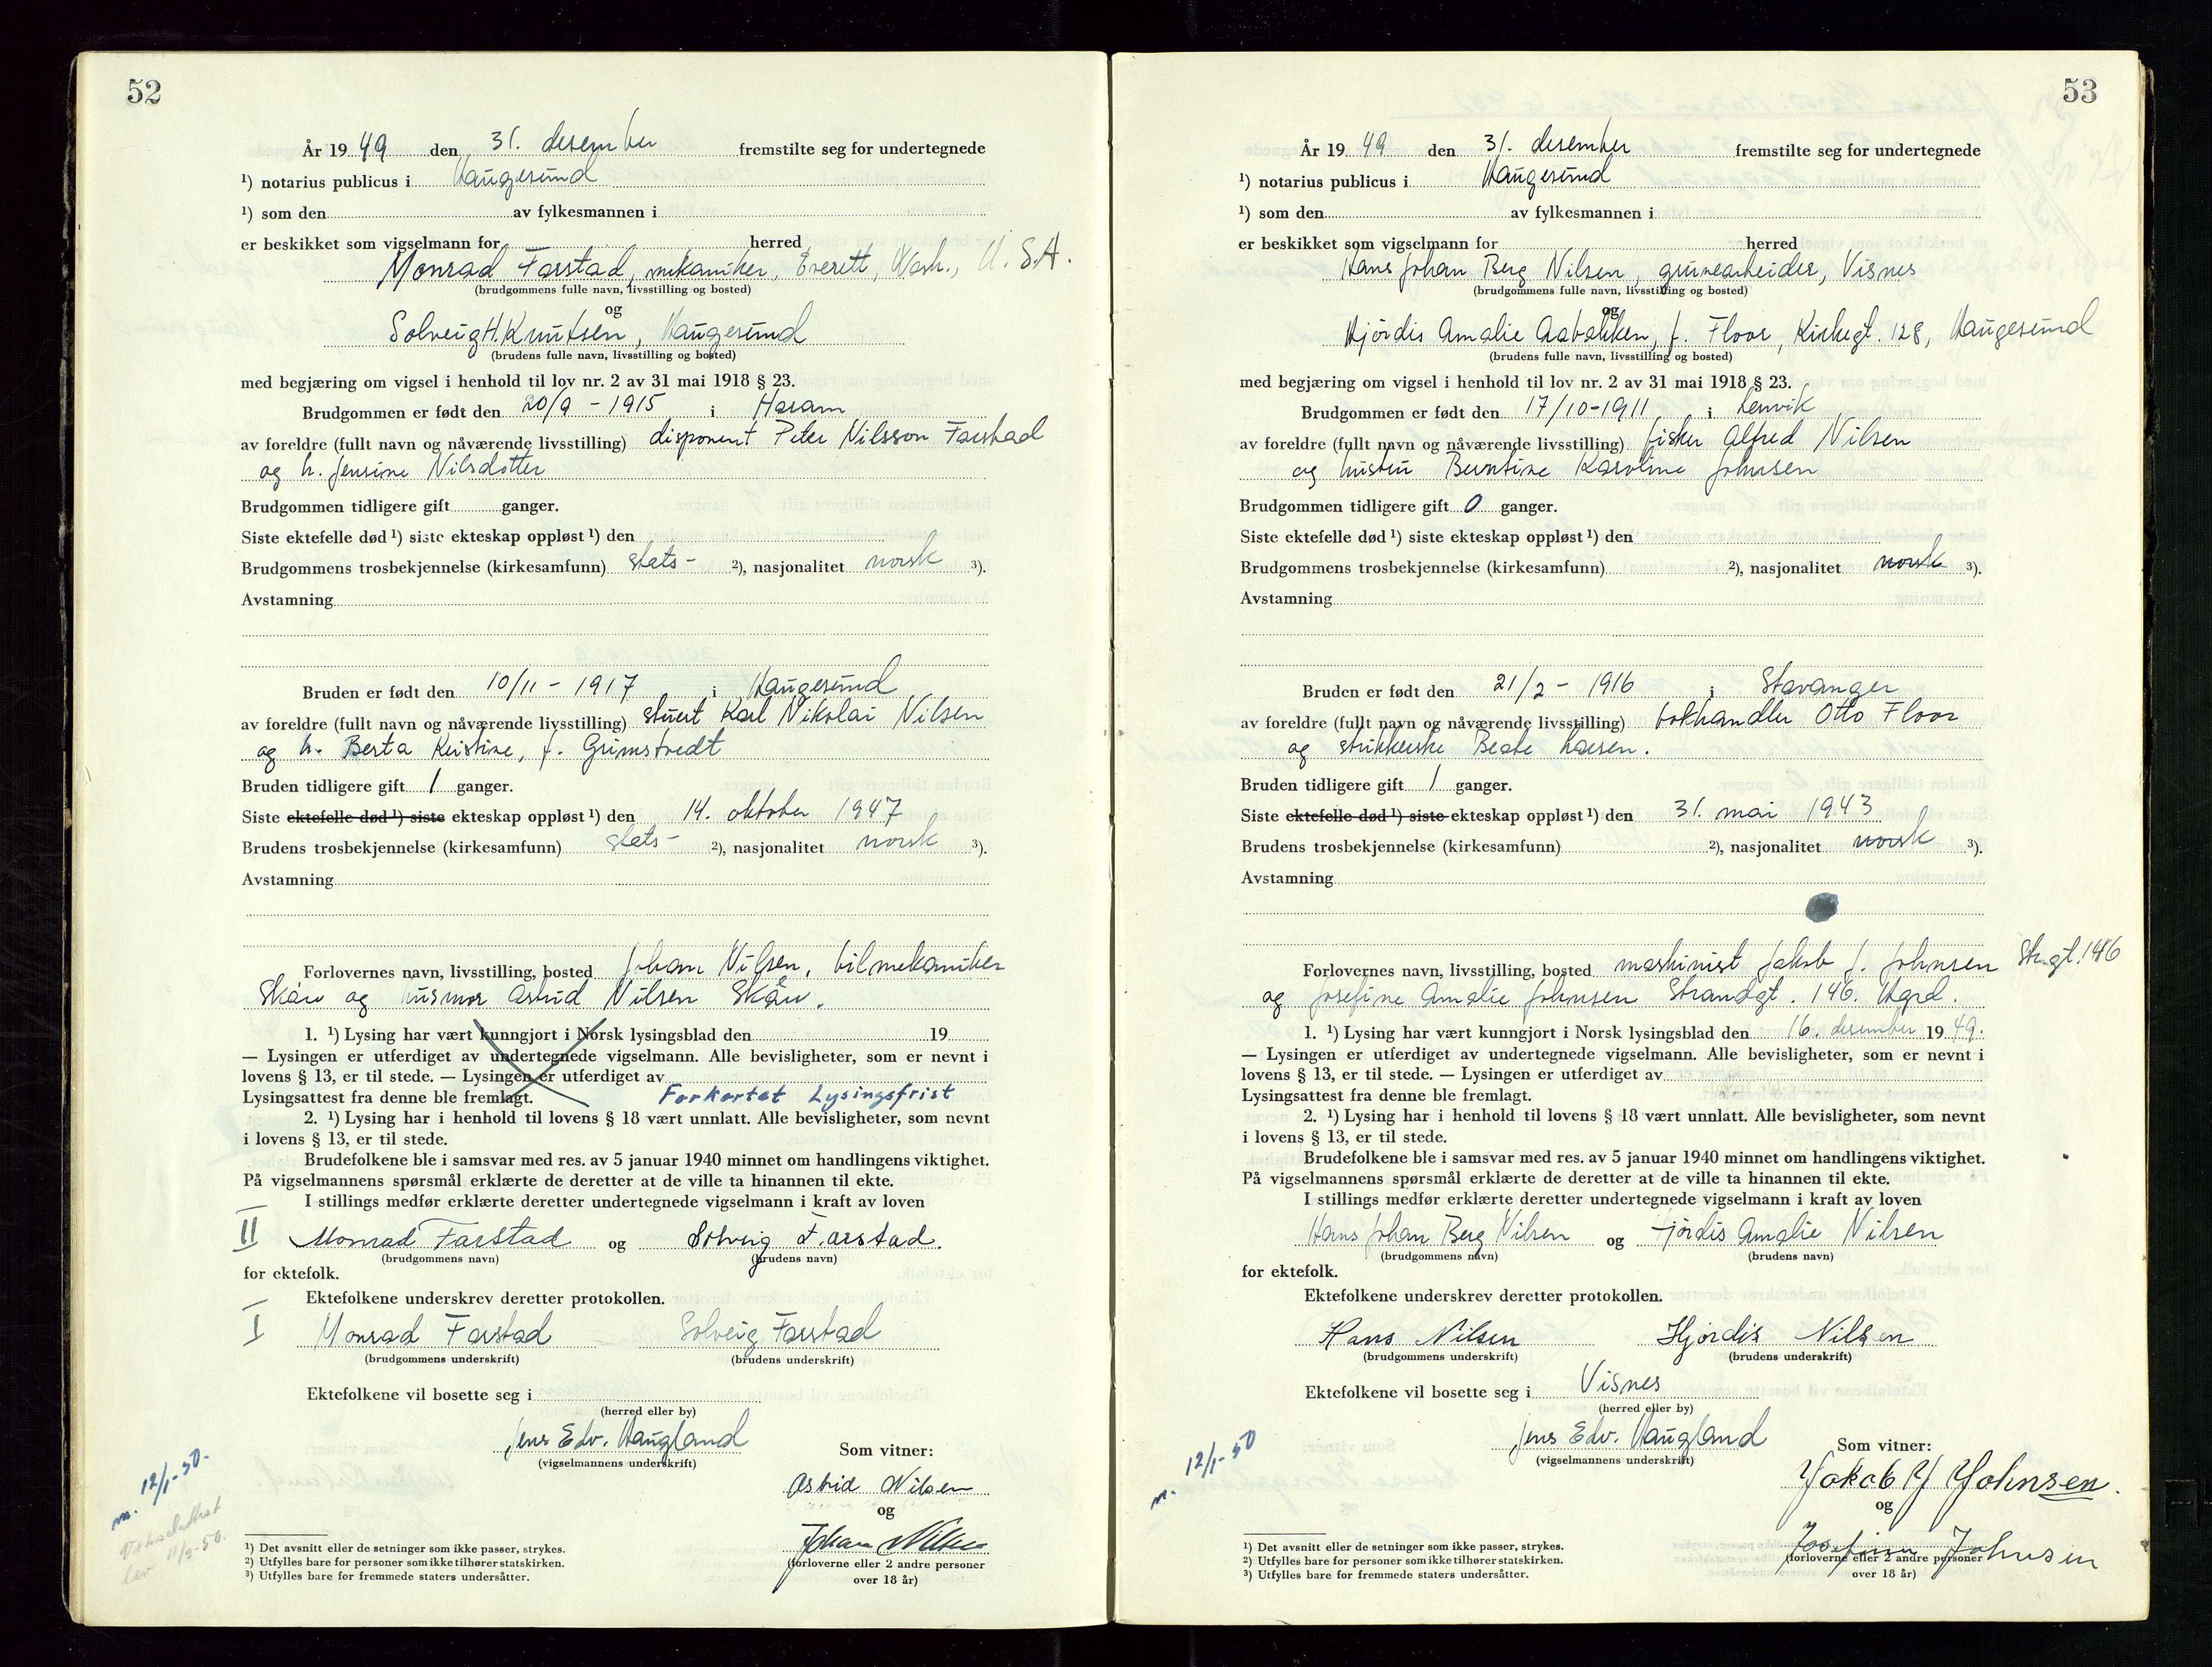 52
År 19 49 den 31. desember fremstilte seg for undertegnede
¹) notarius publicus i Haugesund
¹) som den av fylkesmannen i
er beskikket som vigselmann for herred
Monrad Farstad, mekaniker, Everett, Wash., U.S.A.
(brudgommens fulle navn, livsstilling og bosted)
og
Solveig H. Knutsen, Haugesund
(brudens fulle navn, livsstilling og bosted)
med begjæring om vigsel i henhold til lov nr. 2 av 31 mai 1918 § 23.
Brudgommen er født den 20/9 - 1915 i Haram
av foreldre (fullt navn og nåværende livsstilling) disponent Peter Nilsson Farstad
og h. Jensine Nilsdotter
Brudgommen tidligere gift ganger.
Siste ektefelle død ¹) siste ekteskap oppløst ¹) den
Brudgommens trosbekjennelse (kirkesamfunn) stats- ²), nasjonalitet norsk ³).
Avstamning
Bruden er født den 10/11 - 1917 i Haugesund
av foreldre (fullt navn og nåværende livsstilling) stuert Karl Nikolai Nilsen
og h. Berta Kristine, f. Grimstvedt
Bruden tidligere gift 1 ganger.
Siste ektefelle død ¹) siste ekteskap oppløst ¹) den 14. oktober 1947
Brudens trosbekjennelse (kirkesamfunn) stats- ²), nasjonalitet norsk ³).
Avstamning
Forlovernes navn, livsstilling, bosted Johan Nilsen, bilmekaniker
Skåre og husmor Astrid Nilsen Skåre.
1. ¹) Lysing har vært kunngjort i Norsk lysingsblad den 19
— Lysingen er utferdiget av undertegnede vigselmann. Alle bevisligheter, som er nevnt i
lovens § 13, er til stede. — Lysingen er utferdiget av
Lysingsattest fra denne ble fremlagt. Forkortet Lysingsfrist
2. ¹) Lysing har i henhold til lovens § 18 vært unnlatt. Alle bevisligheter, som nevnt
i lovens § 13, er til stede.
Brudefolkene ble i samsvar med res. av 5 januar 1940 minnet om handlingens viktighet.
På vigselmannens spørsmål erklærte de deretter at de ville ta hinannen til ekte.
I stillings medfør erklærte deretter undertegnede vigselmann i kraft av loven
II Monrad Farstad og Solveig Farstad.
(brudgommens navn) (brudens navn)
for ektefolk.
Ektefolkene underskrev deretter protokollen.
I Monrad Farstad Solveig Farstad
(brudgommens underskrift) (brudens underskrift)
Ektefolkene vil bosette seg i
(herred eller by)
Jens Edv. Haugland
(vigselmannens underskrift)
Som vitner:
Astrid Nilsen
og
Johan Nilsen
(forloverne eller 2 andre personer
over 18 år)
m. 12/1-50.
11/2-50.
¹) Det avsnitt eller de setninger som ikke passer, strykes.
²) Utfylles bare for personer som ikke tilhører statskirken.
³) Utfylles bare for fremmede staters undersåtter.
53
År 19 49 den 31. desember fremstilte seg for undertegnede
¹) notarius publicus i Haugesund
¹) som den av fylkesmannen i
er beskikket som vigselmann for herred
Hans Johan Berg Nilsen, gruvearbeider, Visnes
(brudgommens fulle navn, livsstilling og bosted)
og
Hjördis Amalie Aabakken, f. Floor, Kirkegt. 128, Haugesund
(brudens fulle navn, livsstilling og bosted)
med begjæring om vigsel i henhold til lov nr. 2 av 31 mai 1918 § 23.
Brudgommen er født den 17/10-1911 i Lenvik
av foreldre (fullt navn og nåværende livsstilling) fisker Alfred Nilsen
og hustru Berntine Karoline Johnsen
Brudgommen tidligere gift 0 ganger.
Siste ektefelle død ¹) siste ekteskap oppløst ¹) den
Brudgommens trosbekjennelse (kirkesamfunn) ²), nasjonalitet norsk ³).
Avstamning
Bruden er født den 21/2 - 1916 i Stavanger
av foreldre (fullt navn og nåværende livsstilling) bokhandler Otto Floor
og strikkerske Beate Larsen.
Bruden tidligere gift 1 ganger.
Siste ektefelle død ¹) siste ekteskap oppløst ¹) den 31. mai 1943
Brudens trosbekjennelse (kirkesamfunn) ²), nasjonalitet norsk ³).
Avstamning
Forlovernes navn, livsstilling, bosted maskinist Jakob J. Johnsen Str.gt. 146
og Josefine Amalie Johnsen Strandgt. 146. Hgsd.
1. ¹) Lysing har vært kunngjort i Norsk lysingsblad den 16. desember 19 49.
— Lysingen er utferdiget av undertegnede vigselmann. Alle bevisligheter, som er nevnt i
lovens § 13, er til stede. — Lysingen er utferdiget av
Lysingsattest fra denne ble fremlagt.
2. ¹) Lysing har i henhold til lovens § 18 vært unnlatt. Alle bevisligheter, som nevnt
i lovens § 13, er til stede.
Brudefolkene ble i samsvar med res. av 5 januar 1940 minnet om handlingens viktighet.
På vigselmannens spørsmål erklærte de deretter at de ville ta hinannen til ekte.
I stillings medfør erklærte deretter undertegnede vigselmann i kraft av loven
Hans Johan Berg Nilsen og Hjördis Amalie Nilsen
(brudgommens navn) (brudens navn)
for ektefolk.
Ektefolkene underskrev deretter protokollen.
Hans Nilsen Hjördis Nilsen
(brudgommens underskrift) (brudens underskrift)
Ektefolkene vil bosette seg i Visnes
(herred eller by)
Jens Edv. Haugland
(vigselmannens underskrift)
Som vitner:
Jakob J Johnsen.
og
Josefine Johnsen
(forloverne eller 2 andre personer
over 18 år)
m. 12/1-50
¹) Det avsnitt eller de setninger som ikke passer, strykes.
²) Utfylles bare for personer som ikke tilhører statskirken.
³) Utfylles bare for fremmede staters undersåtter.